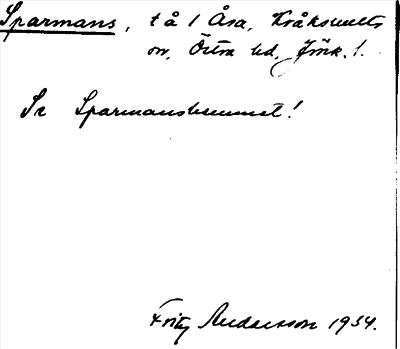 Sparmans, t å 1 Åsa, Kråksmåls
sn, Östra hd, Jönk. l.
Se Sparmanshemmet!
Fritz Andersson 1934.